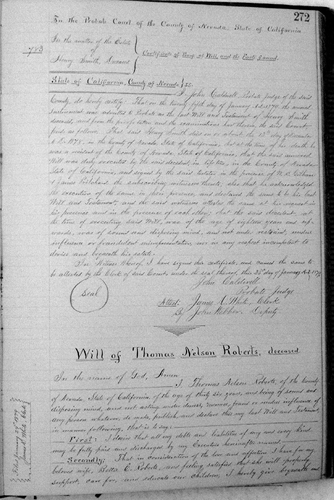 272
In the Probate Court of the County of Nevada, State of California
In the matter of the Estate
of
Henry Smith, Deceased
Certificate of Proof of Will, and the Facts Found.
State of California, County of Nevada } ss.
I, John Caldwell, Probate Judge of the said
County, do hereby certify That on the
day of January A.D. 1879 the annexed
instrument was admitted to Probate as the last Will and Testament of Henry Smith
deceased, and from the proofs taken and the examination had therein the said Court
finds as follows: That said Henry Smith died on or about the day of
A.D. 1878, in the County of Nevada, State of California; that at the time of his death he
was a resident of the County of Nevada, State of California; that the said annexed
Will was duly executed by the said decedent in his lifetime in the County of Nevada
State of California, and signed by the said testator in the presence of
and the subscribing witnesses thereto; also that he acknowledged
the execution of the same in their presence, and declared the same to be his last
Will and Testament, and the said witnesses attested the same at his request in
his presence, and in the presence of each other; that the said decedent, at
the time of executing said Will, was of the age of eighteen years and up-
wards, was of sound and disposing mind, and not under restraint, undue
influence or fraudulent misrepresentation nor in any respect incompetent to
devise and bequeath his estate.
In Witness Whereof, I have signed this certificate, and caused the same to
be attested by the Clerk of said Court, under the seal thereof, this day of January A.D. 1879
John Caldwell
Probate Judge
Seal
Attest: James Clerk
By John Deputy
Will of Thomas Nelson Roberts, deceased
In the name of God, Amen.
I Thomas Nelson Roberts, of the County
of Nevada, State of California, of the age of thirty six years, and being of sound and
disposing mind, and not acting under duress, menace, fraud or undue influence of
any person whatever, do make, publish and declare this my last Will and Testament,
in manner following, that is to say:
First: I desire that all my debts and liabilities of any and every kind,
may be fully paid and discharged by my Executrix hereinafter named.
Secondly: That in consideration of the love and affection I have for my
beloved wife, C. Roberts, and feeling satisfied that she will properly
support, care for, and educate our children, I hereby give, bequeath and